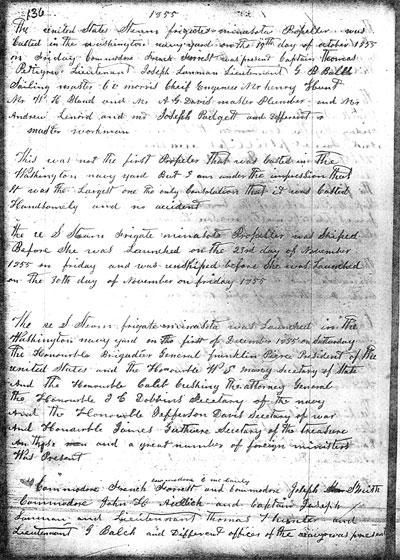 136
1855
The united States Steam frigate minasota Propeller was
Casted in the washington navy yard on the 19th day of october 1855
on Friday Commodore French Forrest was present Captain thomas
Lieutenant Joseph Lanman Lieutenant G Balch
Sailing master C v morris Cheif Engineer Mr henry Hunt
Mr W H Bland and Mr A G David master Plumber and Mr
Andrew Linoid and mr Joseph Padgett and Different
master workman
This was not the first Propeler that was Casted in the
Washington navy yard But I am under the impression that
it was the Largest one the only Consolation that it was Casted
Handsomely and no accident
the u S Steam Frigate minasota Propeller was Shiped
Before She was Launched on the 23rd day of November
1855 on friday and was unshiped before She was Launched
on the 30th day of November on friday 1855
The u S Steam frigate minasota was Launched in the
Washington navy yard on the first of December 1855 on Saturday
the Honourable Brigadier General franklin Pierce President of the
united States and the Honourable W S marcy Secretary of State
And the Honourable Calib Cushing the attorney General
the Honourable J C Dobbins Secretary of the navy
And the Honorable Jefferson Davis Secretary of war
And Honarable James Guthrie Secretary of the treasure
and a great number of foreign ministers
Was Present
commodore C mc Cauley
Commodore French Forrest and Commodore Joseph Smith
Commodore John H Aulick and Captain Joseph
Lanman and Lieutenant Thomas Hunter and
Lieutenant G Balch and Different offices of the navy was present